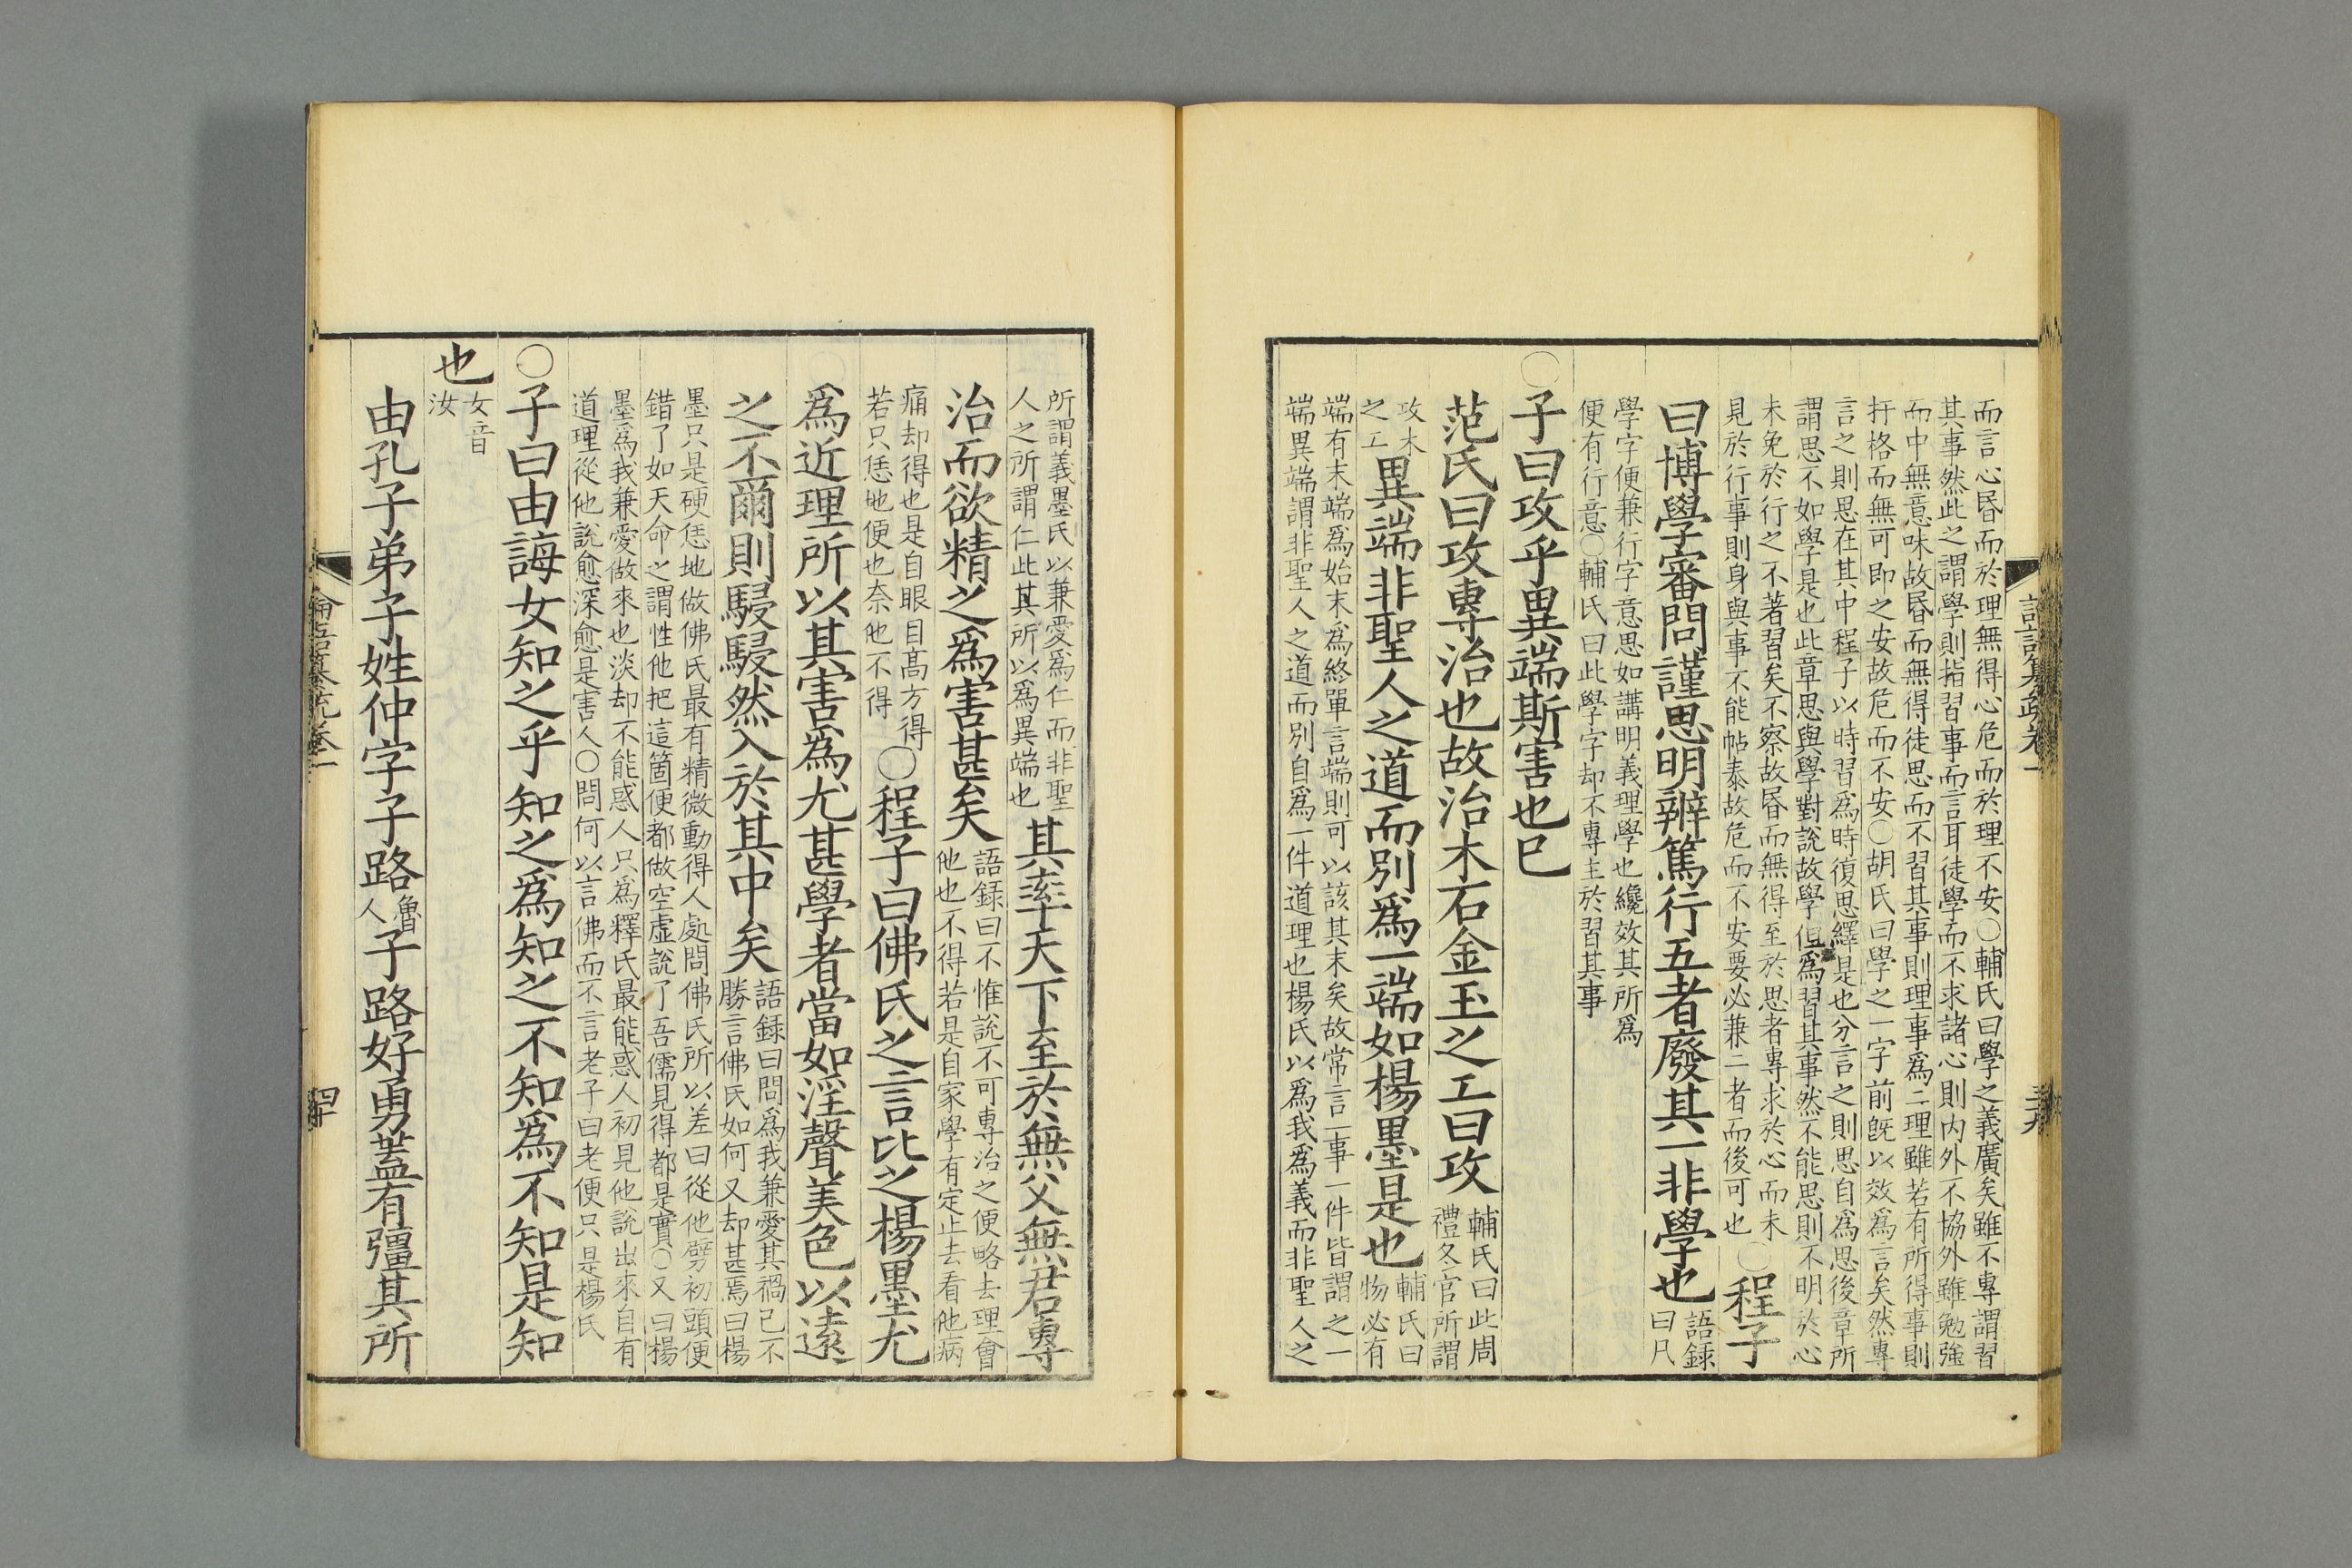 而言心昬而於理無得心危而於理不安○輔氏曰學之義廣矣雖不專謂習
其事然此之謂學則指習事而言耳徒學而不求諸心則内外不協外雖勉強
而中無意味故昬而無得徒思而不習其事則理事爲二理雖若有所得事則
扞格而無可即之安故危而不安○胡氏曰學之一字前旣以效爲言矣然專
言之則思在其中程子以時習爲時復思繹是也分言之則思自爲思後章所
謂思不如學是也此章思與學對說故學但爲習其事然不能思則不明於心
未免於行之不著習矣不察故昬而無得至於思者專求於心而未
見於行事則身與事不能帖泰故危而不安要必兼二者而後可也
○程子
曰博學審問謹思明辨篤行五者廢其一非學也
語録
曰凡
學字便兼行字意思如講明義理學也纔效其所爲
便有行意○輔氏曰此學字却不專主於習其事
○子曰攻乎異端斯害也已
范氏曰攻專治也故治木石金玉之工曰攻
輔氏曰此周
禮冬官所謂
攻木
之工
異端非聖人之道而別爲一端如楊墨是也
輔氏曰
物必有
端有末端爲始末爲終單言端則可以該其末矣故常言一事一件皆謂之一
端異端謂非聖人之道而別自爲一件道理也楊氏以爲我爲義而非聖人之
所謂義墨氏以兼愛爲仁而非聖
人之所謂仁此其所以爲異端也
其率天下至於無父無君專
治而欲精之爲害甚矣
語録曰不惟說不可專治之便略去理會
他也不得若是自家學有定止去看他病
痛却得也是自眼目高方得
若只恁地便也奈他不得
○程子曰佛氏之言比之楊墨尤
爲近理所以其害爲尤甚學者當如淫聲美色以遠
之不爾則駸駸然入於其中矣
語録曰問爲我兼愛其禍已不
勝言佛氏如何又却甚焉曰楊
墨只是硬恁地做佛氏最有精微動得人處問佛氏所以差曰從他劈初頭便
錯了如天命之謂性他把這箇便都做空虛說了吾儒見得都是實○又曰楊
墨爲我兼愛做來也淡却不能惑人只爲釋氏最能惑人初見他說出來自有
道理從他說愈深愈是害人○問何以言佛而不言老子曰老便只是楊氏
○子曰由誨女知之乎知之爲知之不知爲不知是知
也
女音
汝
由孔子弟子姓仲字子路
魯
人
子路好勇蓋有彊其所
論語纂疏卷一
四十